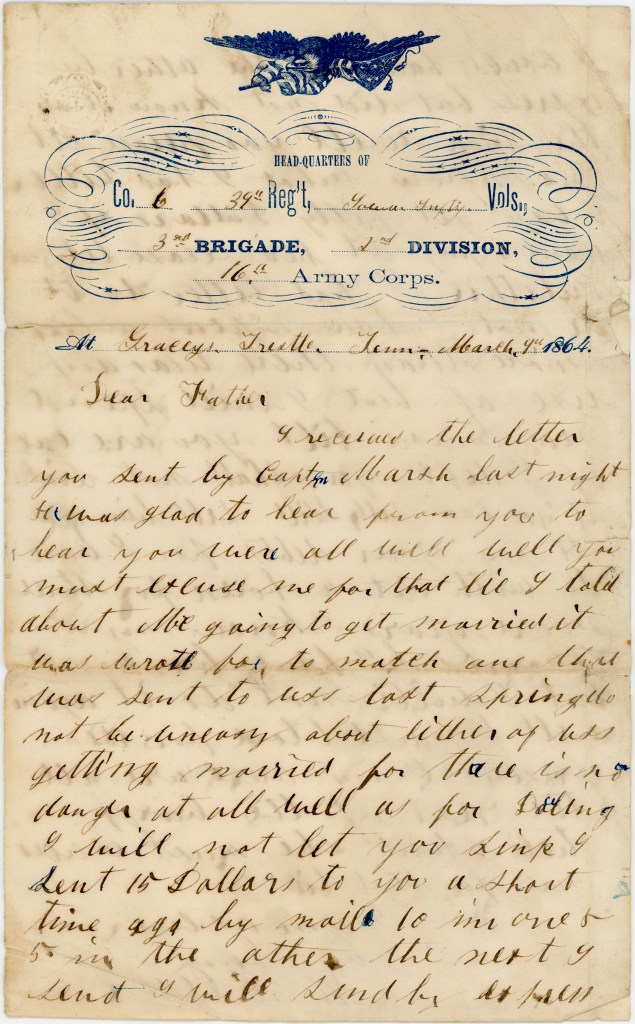 HEAD-QUARTERS OF
Co. 6 39th Reg't, Iowa Infty. Vols.,
3rd BRIGADE, 2nd DIVISION,
16th Army Corps.
At Graceys Trestle Tenn- March 9th 1864.
Dear Father
I recieved the letter
you sent by Captn Marsh last night
was glad to hear from you to
hear you were all well well you
must excuse me for that lie I told
about Me going to get married it
was wrote for to match one that
was sent to uss last spring do
not be uneasy about either of uss
getting married for there is no
danger at all well as for
I will not let you sink I
sent 15 Dollars to you a short
time ago by mail 10 in one &
5 in the other the next I
send I will send by express